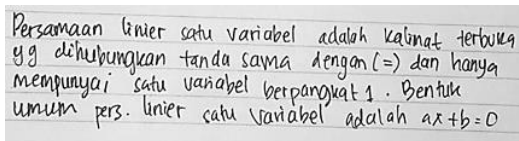 Persamaan linier satu variabel adalah kalimat terbuka
yg dihubungkan tanda sama dengan (=) dan hanya
mempunyai satu variabel berpangkat 1. Bentuk
umum pers. linier satu variabel adalah ax+b=0